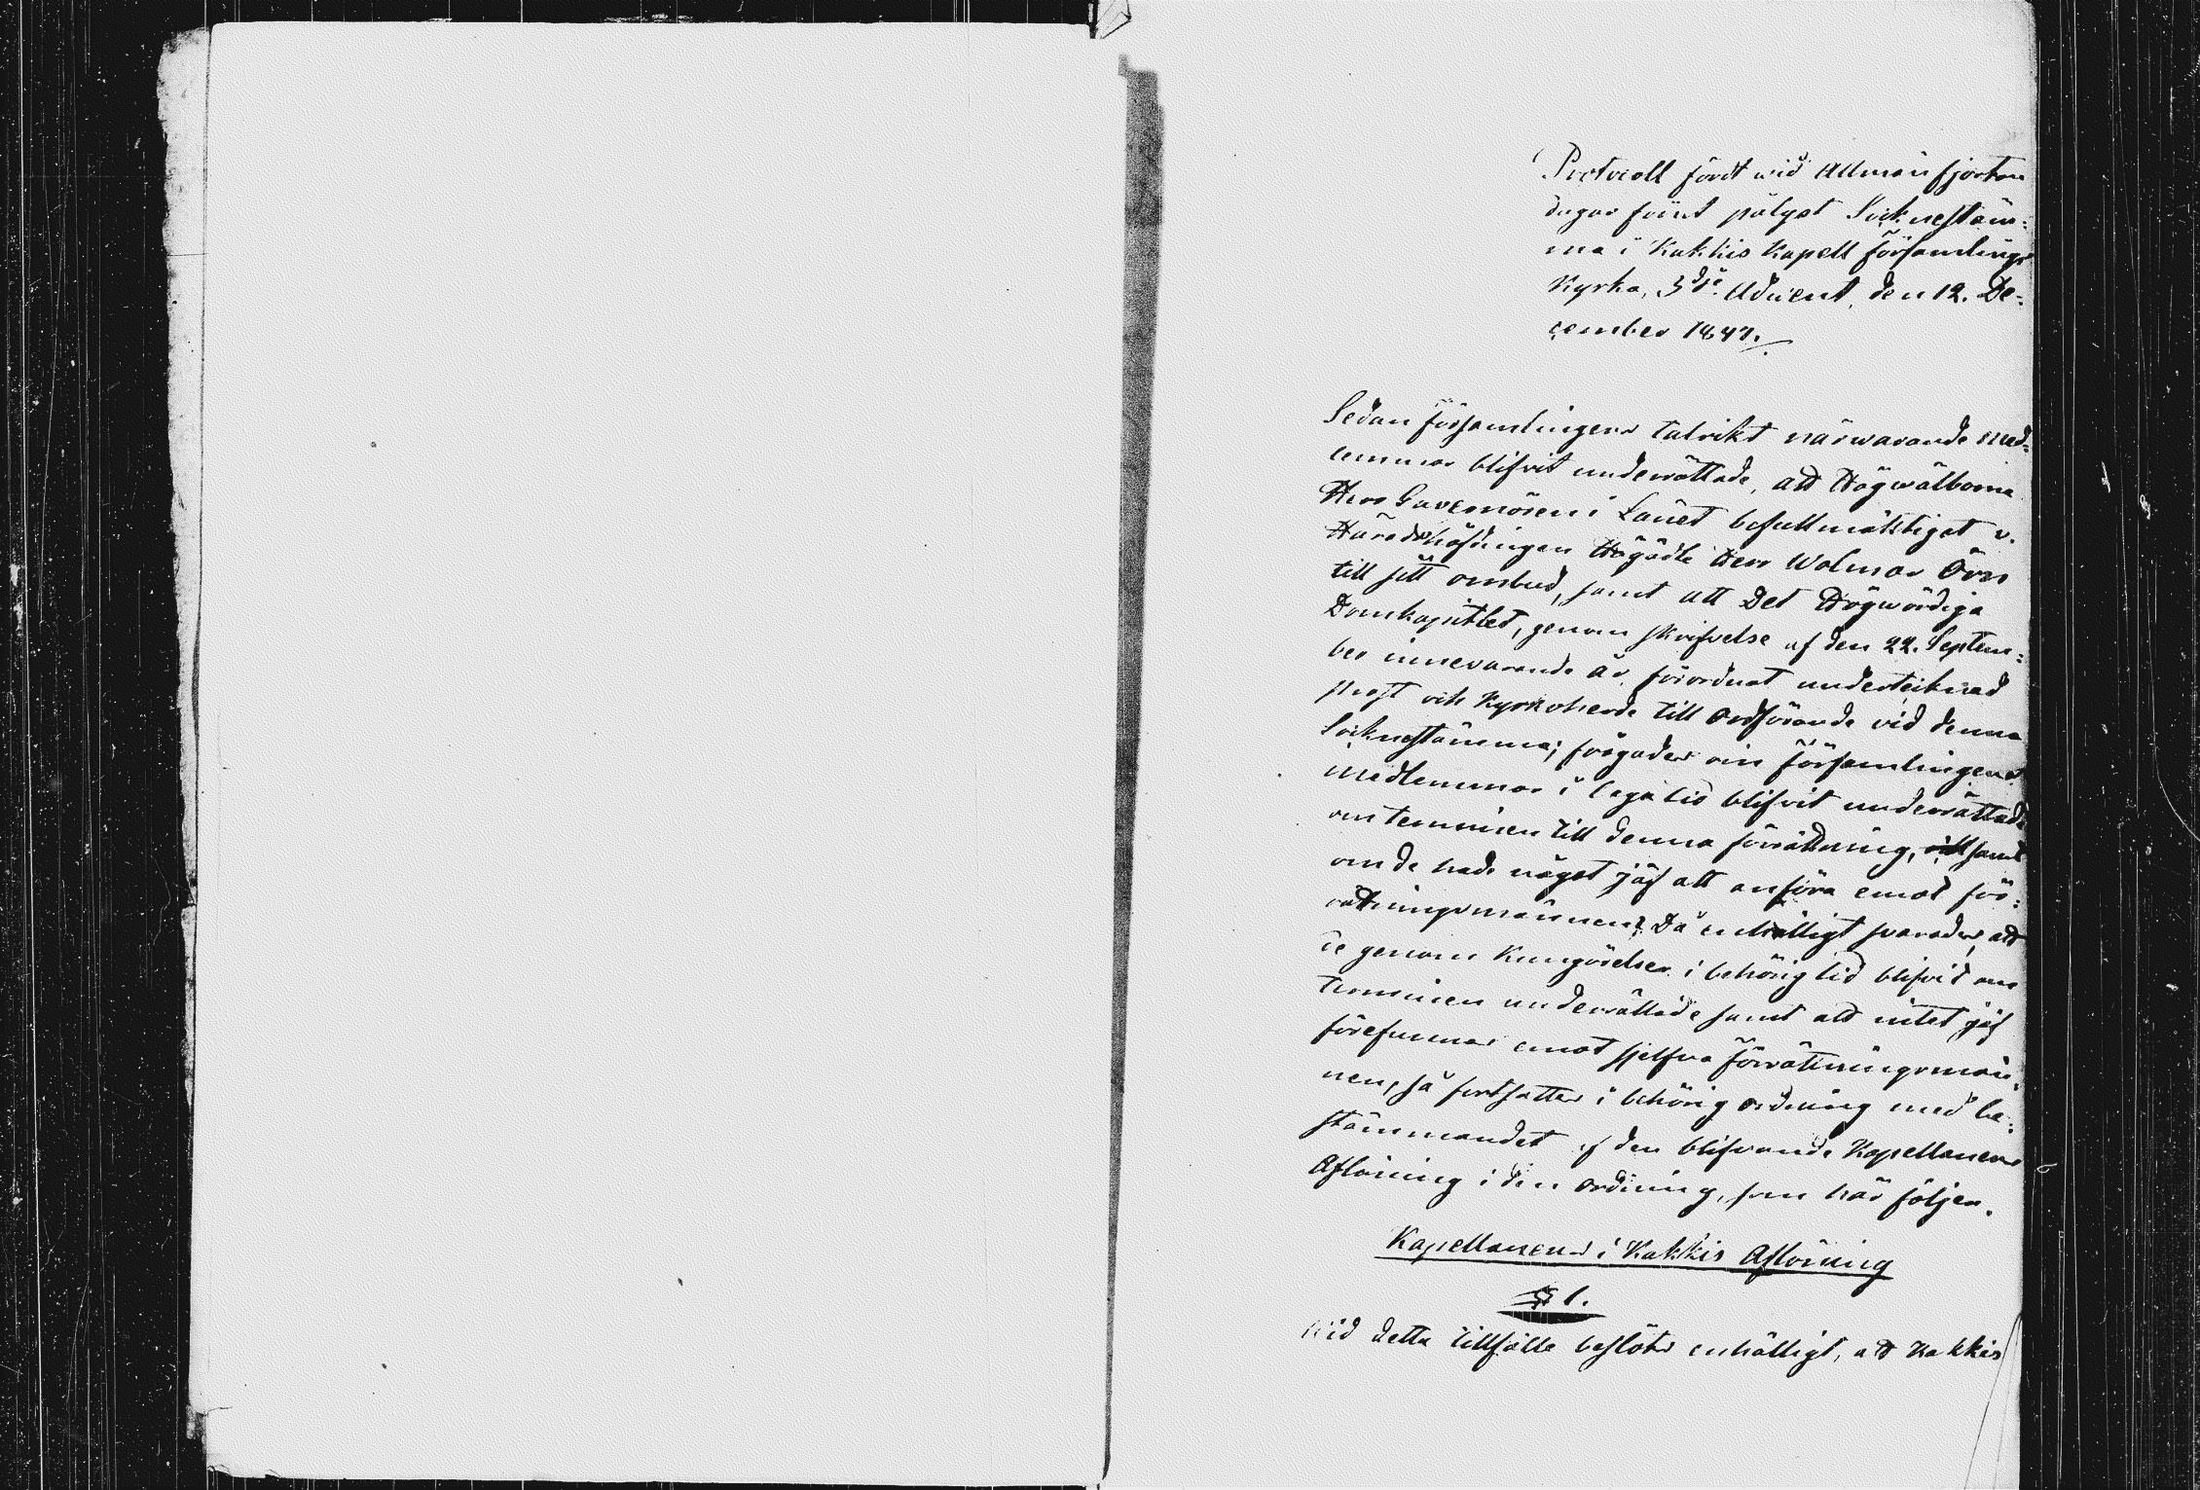 Protocoll fördt wid Allmän fjorton
dagar förut pålyst Socknestäm-
ma i Kakkis Kapell församlings
Kyrka, 3dje Advent, den 12. De-
cember 1847.
Sedan församlingens talrikt närwarande med-
lemmar blifvit underrättade, att Högwälborne
Herr Guvernören i Länet befullmäktigat v.
Häradshöfdingen Högädle Herr Wolmar Örn
till sitt ombud, samt att Det Högwördiga
Domkapitlet, genom skrifvelse af den 22. Septem-
ber innevarande år förordnat undertecknad
prost och Kyrkoherde till Ordförande vid denna
Socknestämma; frågades om församlingens
medlemmar i laga tid blifvit underrättade
om terminen till denna förrättning, samt
om de hade något jäf att anföra emot för-
rättningsmännen? Då enhälligt svarades, att
de genom Kungörelser i behörig tid blifvit om
terminen underrättade samt att intet jäf
förefunnes emot sjelfva förrättningsmän-
nen, så fortsattes i behörig ordning med be-
stämmandet af den blifvande Kapellanens
Aflöning i den ordning, som här följer.
Kapellanens i Kakkis Aflöning
§ 1.
Wid detta tillfälle beslöts enhälligt, att Kakkis